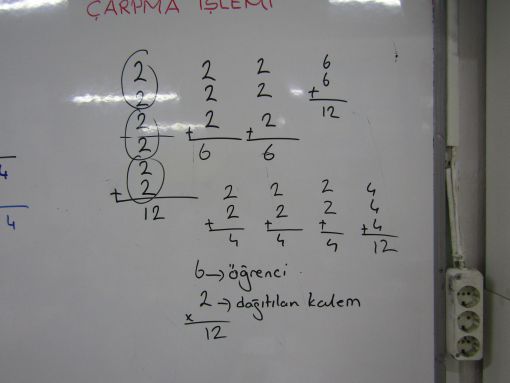 ÇARPMA İŞLEMİ
2 2 2 6
2 2 2 + 6
2 + 2 + 2 12
2 6 6
2
+ 2
12
2 2 2 4
+ 2 + 2 + 2 4
4 4 4 + 4
12
6 → öğrenci
x 2 → dağıtılan kalem
12
4
4